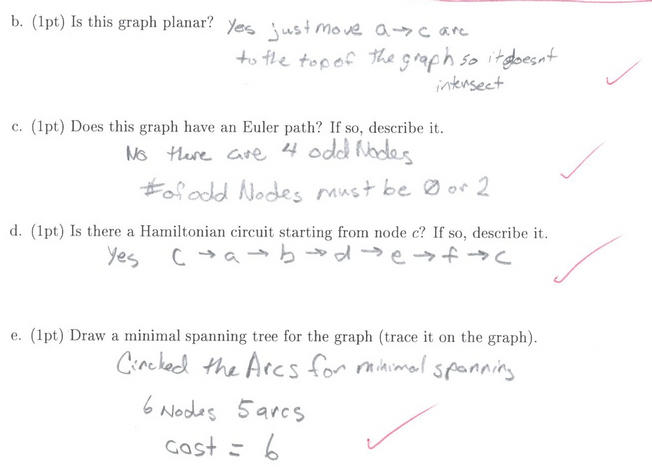 b. (1pt) Is this graph planar? Yes just move a→c arc
to the top of the graph so it doesnt
intersect
c. (1pt) Does this graph have an Euler path? If so, describe it.
No there are 4 odd Nodes
# of odd Nodes must be 0 or 2
d. (1pt) Is there a Hamiltonian circuit starting from node c? If so, describe it.
Yes C → a → b → d → e → f → c
e. (1pt) Draw a minimal spanning tree for the graph (trace it on the graph).
Circked the Arcs for minimal spanning
6 Nodes 5 arcs
cost = 6